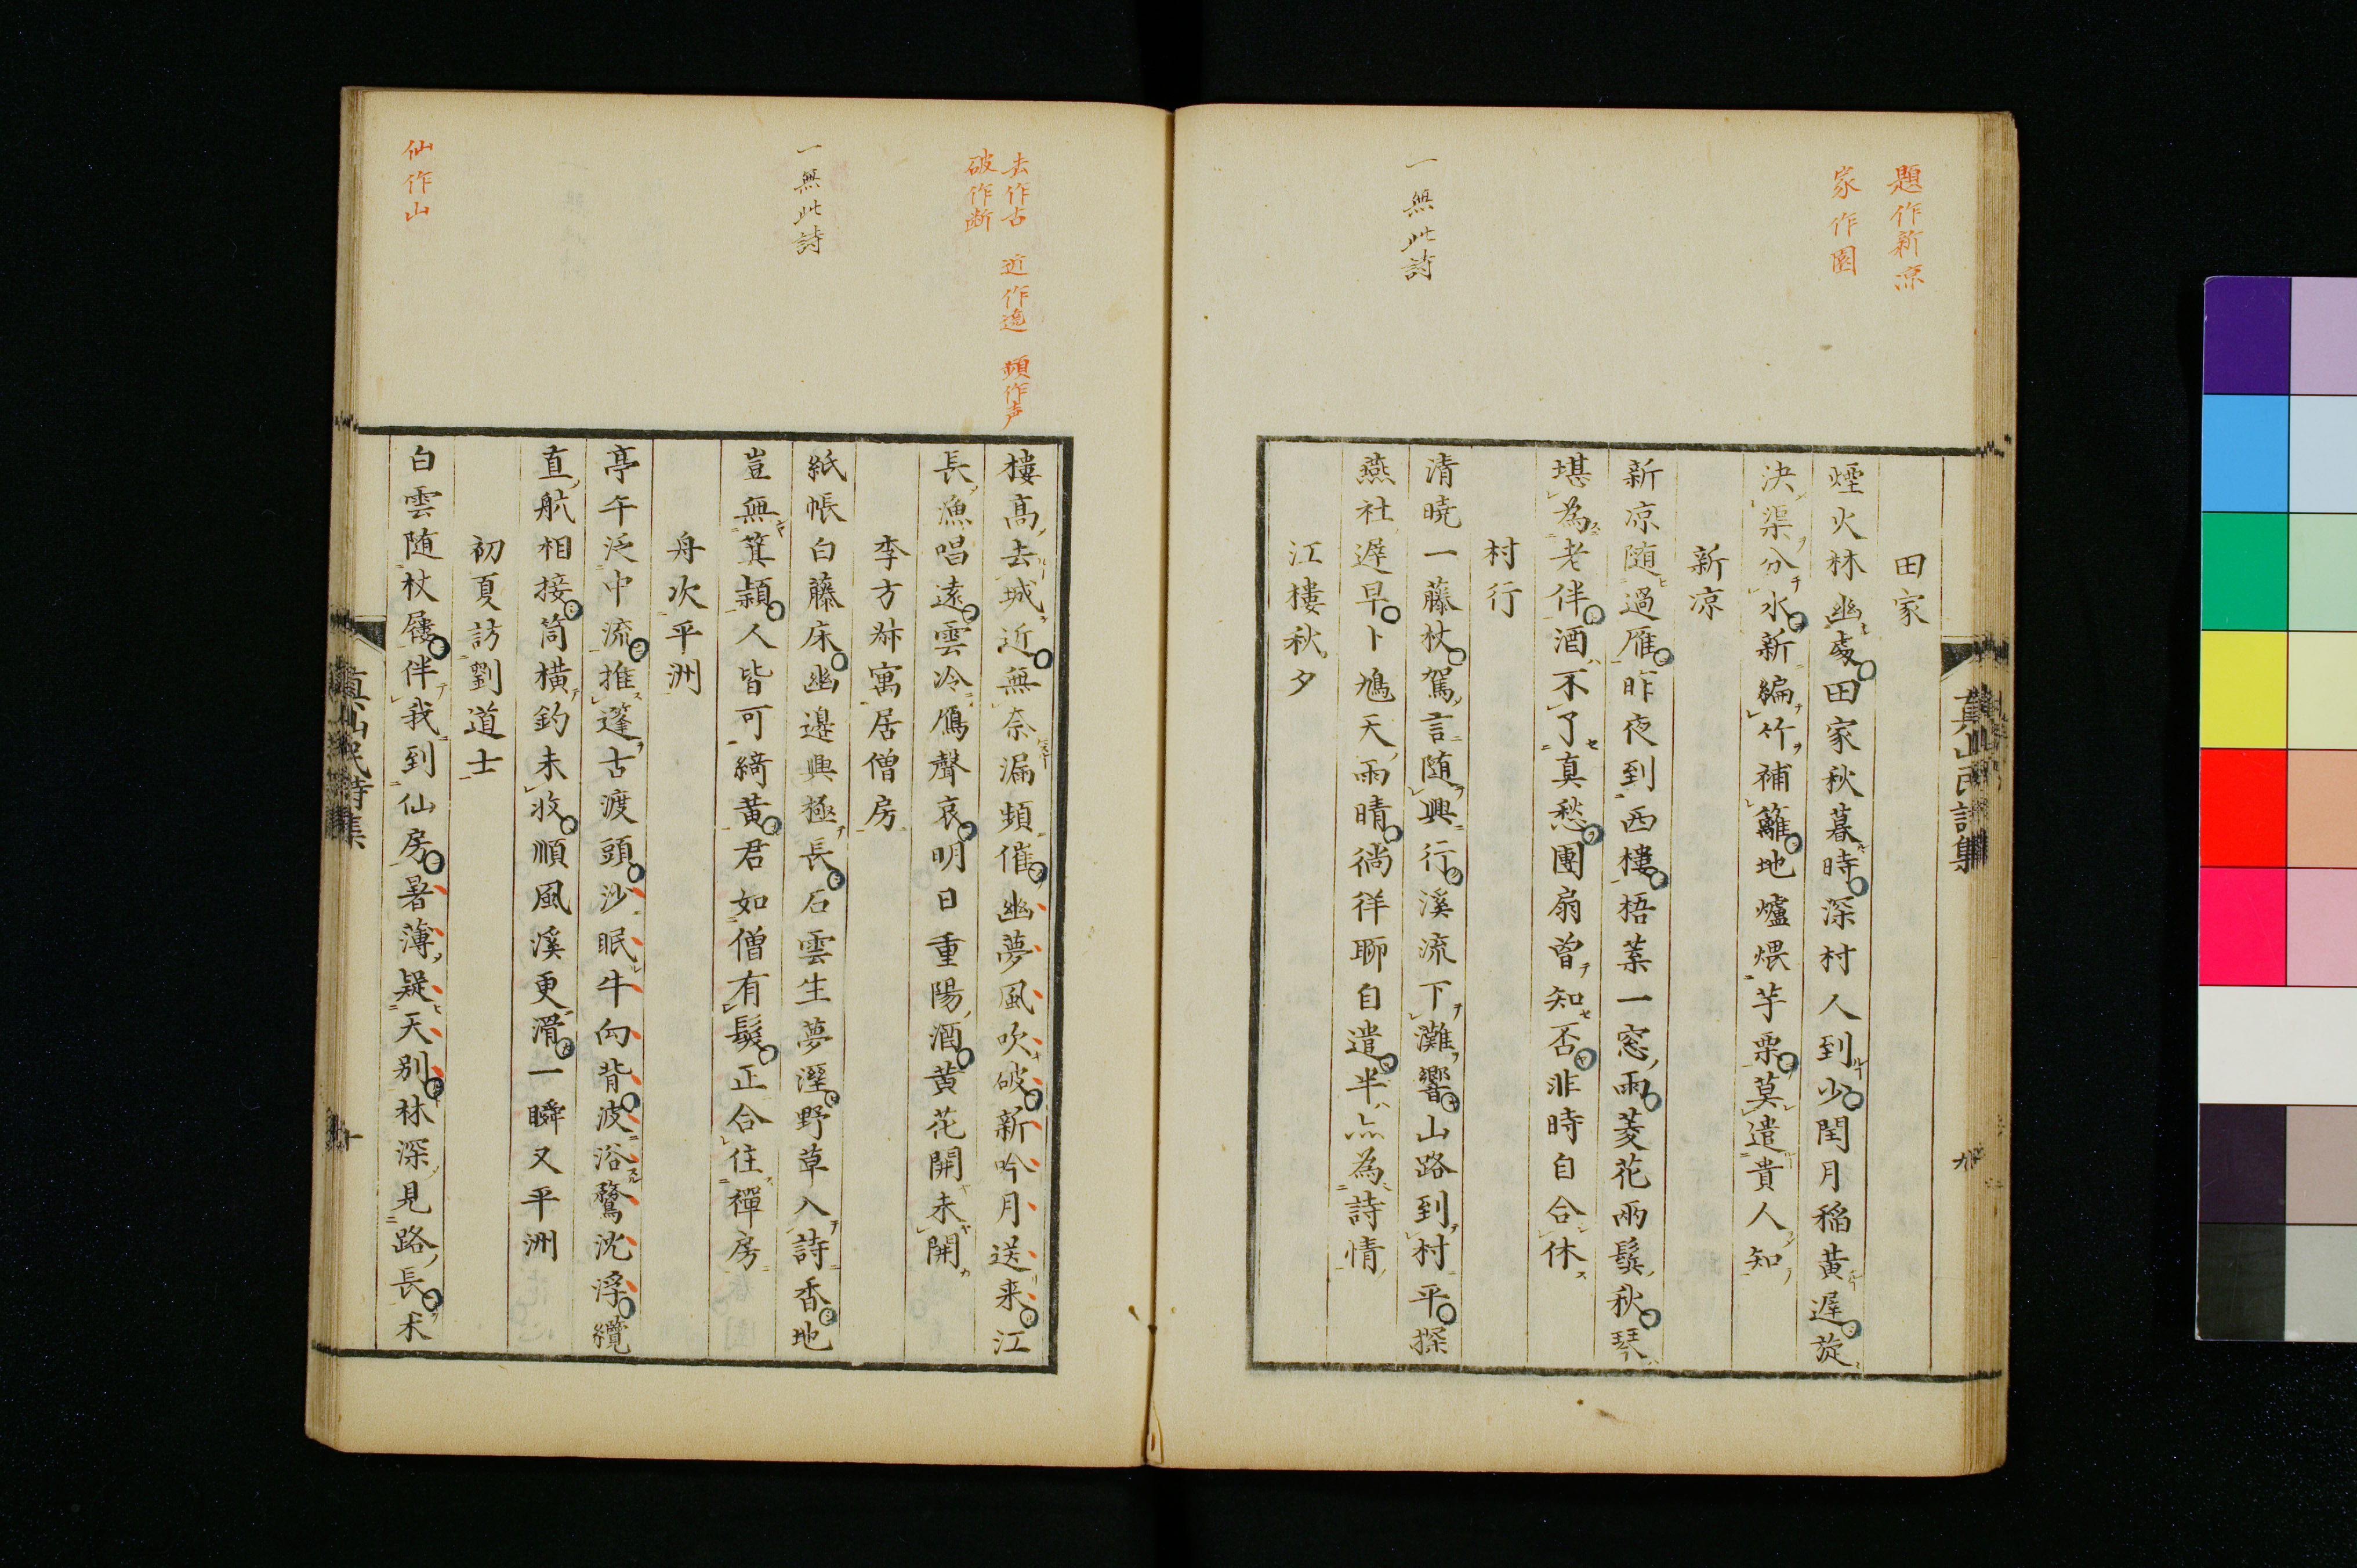 題作新凉
家作園
一無此詩
田家
煙火林幽處田家秋暮時深村人到少閏月稲黄遅旋
決渠分水新編竹補籬地爐煨芋栗莫遣貴人知
新凉
新凉随過雁昨夜到西樓梧葉一窓雨菱花兩鬓秋琴
堪為老伴酒不了真愁團扇曽知否非時自合休
村行
清曉一藤杖駕言随興行溪流下灘響山路到村平探
燕社遅早卜鳩天雨晴徜徉聊自遣半亦為詩情
江樓秋夕
真山民詩集
九
去作古 近作遶 頻作声
破作断
一無此詩
仙作山
樓高去城近無奈漏頻催幽夢風吹破新吟月送来江
長漁唱遠雲冷鴈聲哀明日重陽酒黄花開未開
李方叔寓居僧房
紙帳白藤床幽邉興極長石雲生夢溼野草入詩香地
豈無箕潁人皆可綺黄君如僧有髮正合住禪房
舟次平洲
亭午泛中流推篷古渡頭沙眠牛向背波浴鶩沈浮纜
直航相接筒横釣未收順風溪更滑一瞬又平洲
初夏訪劉道士
白雲随杖屨伴我到仙房暑薄疑天别林深見路長术
真山民詩集
十